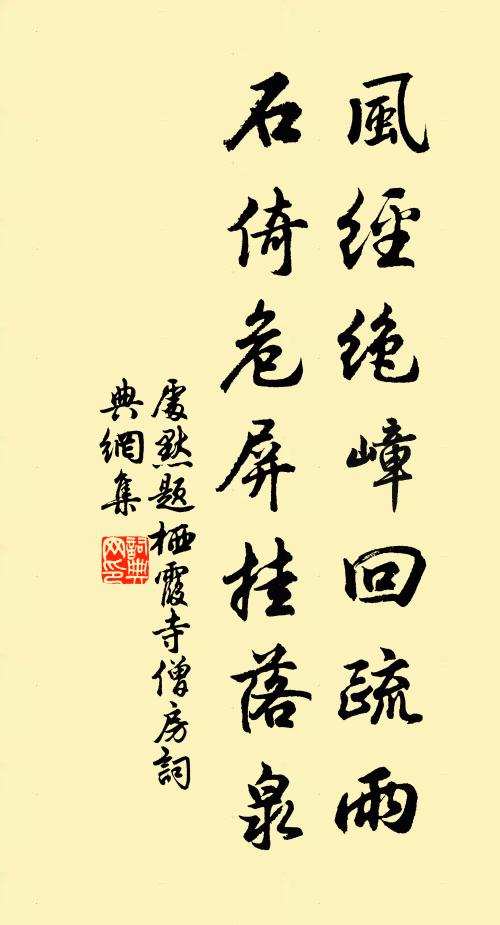 風經絶嶂回疏雨
石倚危屏挂落泉
處默題栖霞寺僧房詞
典網集
詞典
网印